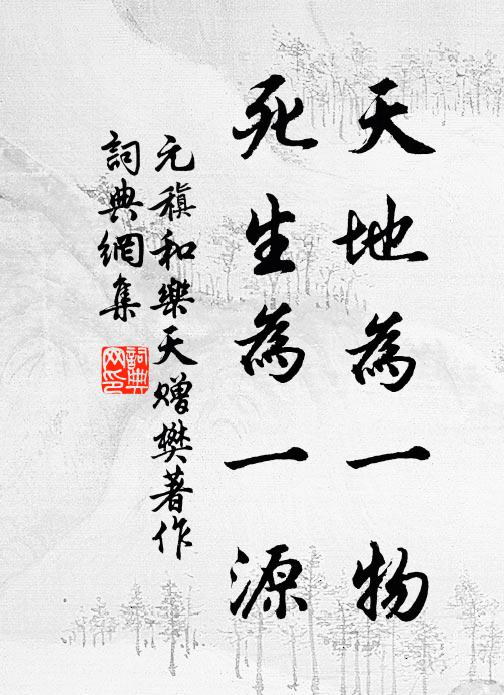 天地為一物
死生為一源
元稹和樂天贈樊著作
詞典網集
詞典网印